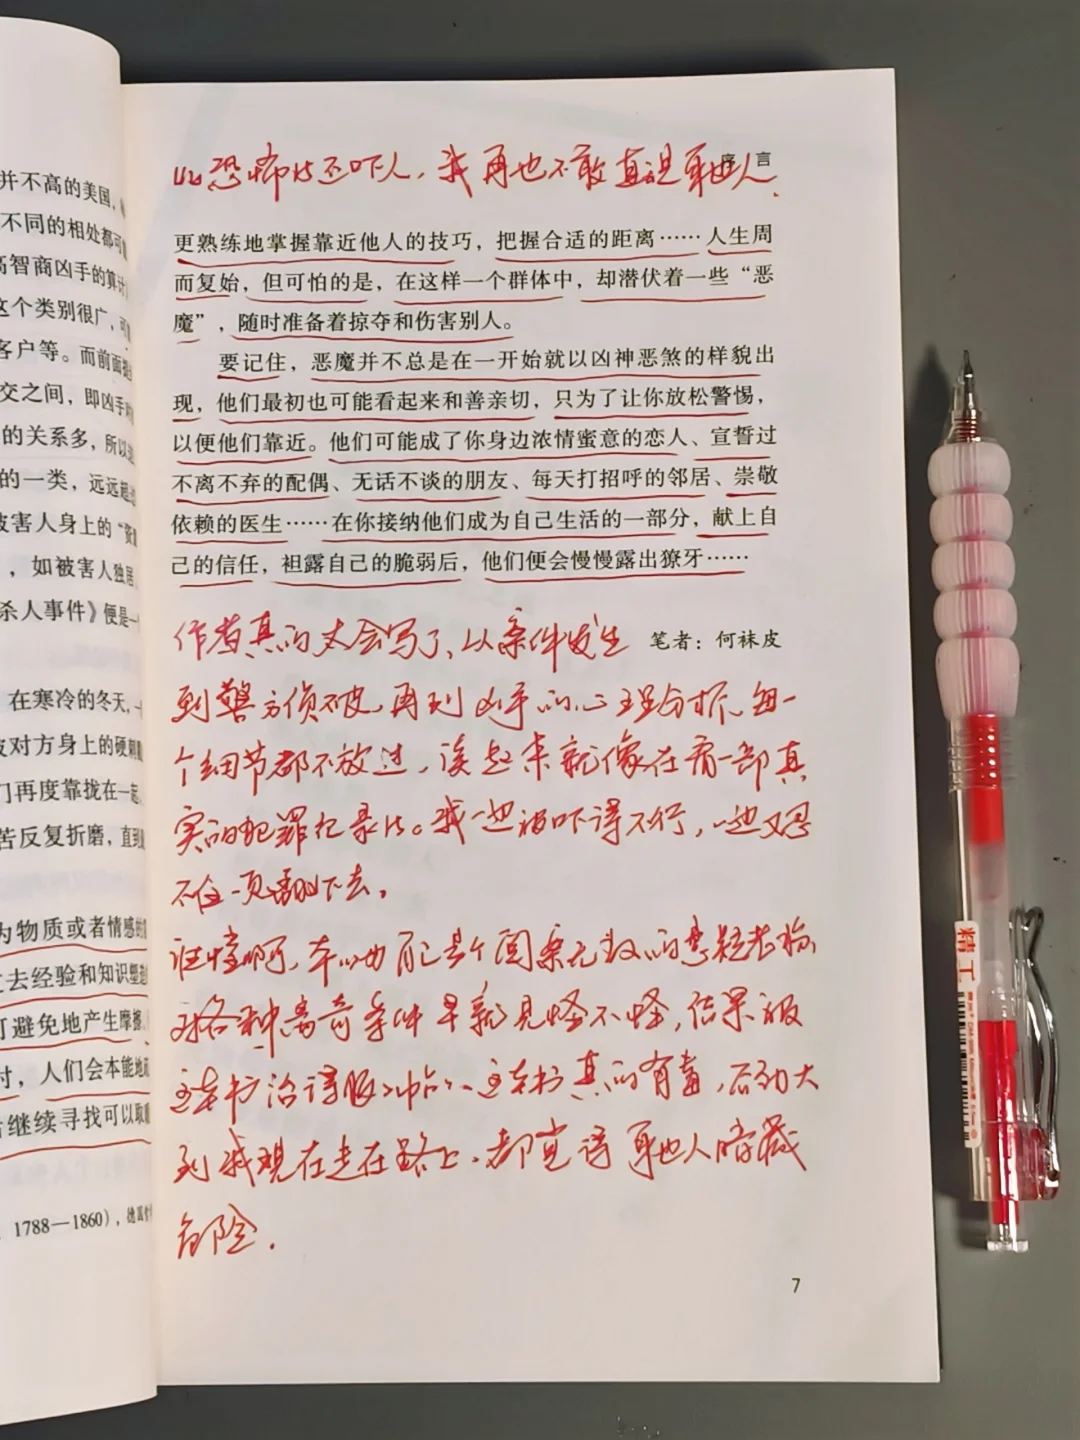 并不高的美国，
不同的相处都可
高智商凶手的算计
这个类别很广，可
客户等。而前面提
交之间，即凶手
的关系多，所以这
的一类，远远超过
被害人身上的“资
，如被害人独居
杀人事件》便是一
在寒冷的冬天，一
对方身上的硬刺
门再度靠拢在一起
苦反复折磨，直到
为物质或者情感的
过去经验和知识塑造
可避免地产生摩擦
时，人们会本能地
后继续寻找可以取
1788—1860），德国
序 言
比恐怖片还吓人，我再也不敢直视身边人.
更熟练地掌握靠近他人的技巧，把握合适的距离……人生周
而复始，但可怕的是，在这样一个群体中，却潜伏着一些“恶
魔”，随时准备着掠夺和伤害别人。
要记住，恶魔并不总是在一开始就以凶神恶煞的样貌出
现，他们最初也可能看起来和善亲切，只为了让你放松警惕，
以便他们靠近。他们可能成了你身边浓情蜜意的恋人、宣誓过
不离不弃的配偶、无话不谈的朋友、每天打招呼的邻居、崇敬
依赖的医生……在你接纳他们成为自己生活的一部分，献上自
己的信任，袒露自己的脆弱后，他们便会慢慢露出獠牙……
笔者：何袜皮
作者真的太会写了，从案件发生
到警方侦破，再到凶手的心理分析，每一
个细节都不放过，读起来就像在看一部真
实的犯罪纪录片。我一边被吓得不行，一边又忍
不住一页页翻下去。
谁懂啊，本以为自己是个阅案无数的悬疑老粉，
对各种离奇案件早就见怪不怪，结果被
这本书治得服服帖帖，这本书真的有毒，后劲大
到我现在走在路上，都觉得身边人暗藏
危险.
7
精工